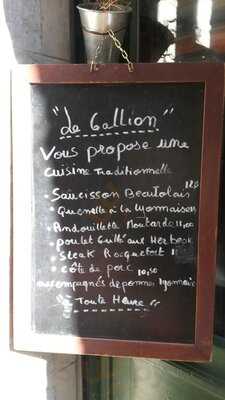 "Le Gallion"
Vous propose une
cuisine Traditionnelle
• Saucisson Beaujolais 12,50
• Quenelle à la Lyonnaise
• Andouillette Moutarde 11,00
• poulet Grillé aux Herbes
• Steak Rocquefort 11
• côte de porc 10,50
accompagnés de pommes lyonnaise
"à Toute Heure"